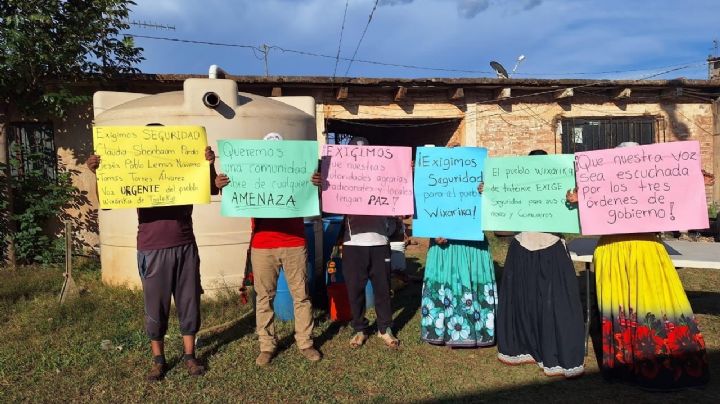 Exigimos SEGURIDAD
Claudia Sheinbaum Pardo
Jesús Pablo Lemus Navarro
Torres
Voz URGENTE del pueblo
wixárika de
Queremos una
comunidad
libre de cualquier
AMENAZA
EXIGIMOS
que nuestras
autoridades agrarias
tradicionales y locales
tengan PAZ!
¡Exigimos
Seguridad
para el pueblo
Wixárika!
El pueblo wixárika
de EXIGE
Seguridad para sus
y Comuneros
Que nuestra voz
sea escuchada
por los tres
órdenes de
gobierno!